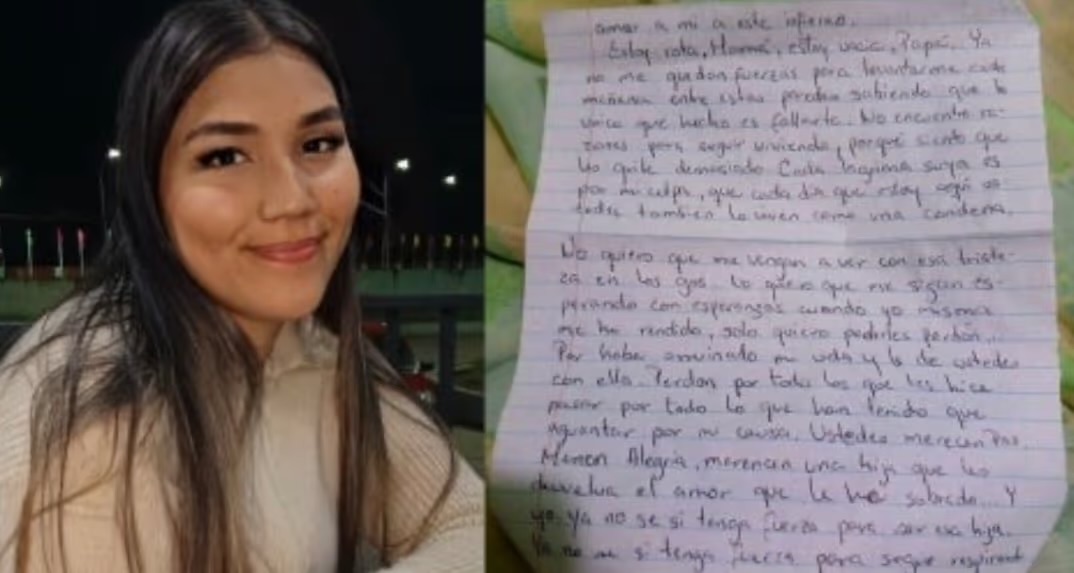 amar a mi a este infierno.
Estoy rota, Mamá, estoy vacia, Papá... Ya
no me quedan fuerzas para levantarme cada
mañana entre estas paredes sabiendo que lo
unico que hecho es fallarte. No encuentro ra-
zones para seguir viviendo, porque siento que
les quite demasiado Cada lagrima suya es
por mi culpa, que cada dia que estoy aqui us
tedes tambien lo viven como una condena.
No quiero que me vengan a ver con esa triste-
za en los ojos. No quiero que me sigan es-
perando con esperanzas cuando yo misma
me he rendido, solo quiero pedirles perdon...
Por haber arruinado mi vida y la de ustedes
con ella. Perdon por todo los que les hice
pasar por todo lo que han tenido que
aguantar por mi causa. Ustedes merecen Paz
Alegria, merecen una hija que les
devuelva el amor que le ha sobrado... Y
yo ya no se si tenga fuerza para ser esa hija.
Ya no se si tenga fuerza para seguir respirand